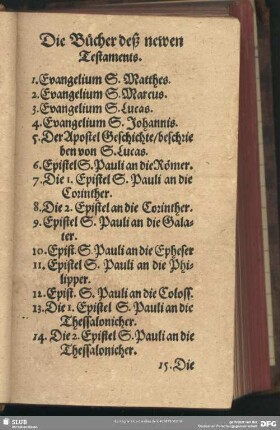 Die Bücher deß newen
Testaments.
1. Evangelium S. Matthes.
2. Evangelium S. Marcus.
3. Evangelium S. Lucas.
4. Evangelium S. Johannis.
5. Der Apostel Geschichte/ beschrie
ben von S. Lucas.
6. Epistel S. Pauli an die Römer.
7. Die 1. Epistel S. Pauli an die
Corinther.
8. Die 2. Epistel an die Corinther.
9. Epistel S. Pauli an die Gala-
ter.
10. Epist. S. Pauli an die Epheser
11. Epistel S. Pauli an die Phi-
lipper.
12. Epist. S. Pauli an die Coloss.
13. Die 1. Epistel S. Pauli an die
Thessalonicher.
14. Die 2. Epistel S. Pauli an die
Thessalonicher.
15. Die
SLUB
DFG